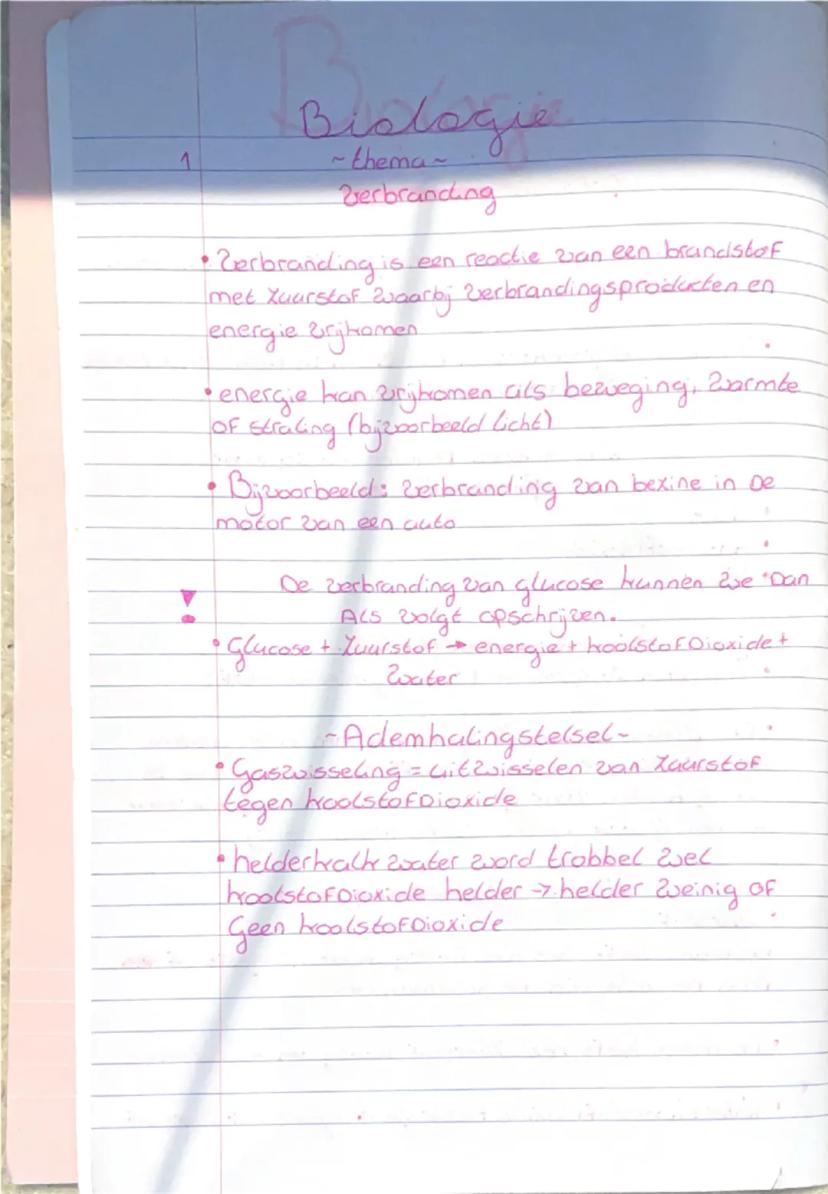 Biologie
1 ~thema~
Verbranding
• Verbranding is een reactie van een brandstof
met zuurstof waarbij verbrandingsproducten en
energie vrijkomen
• energie kan vrijkomen als beweging, warmte
of straling (bijvoorbeeld licht)
• Bijvoorbeeld: verbranding van bezine in De
motor van een auto
De verbranding van glucose kunnen we Dan
! Als volgt opschrijven.
• Glucose + zuurstof → energie + koolstofDioxide +
water
~Ademhalingstelsel~
• Gaswisseling = uitwisselen van zuurstof
tegen koolstofDioxide
• helderkalk water word trobbel wel
koolstofDioxide helder → helder weinig of
Geen koolstofDioxide